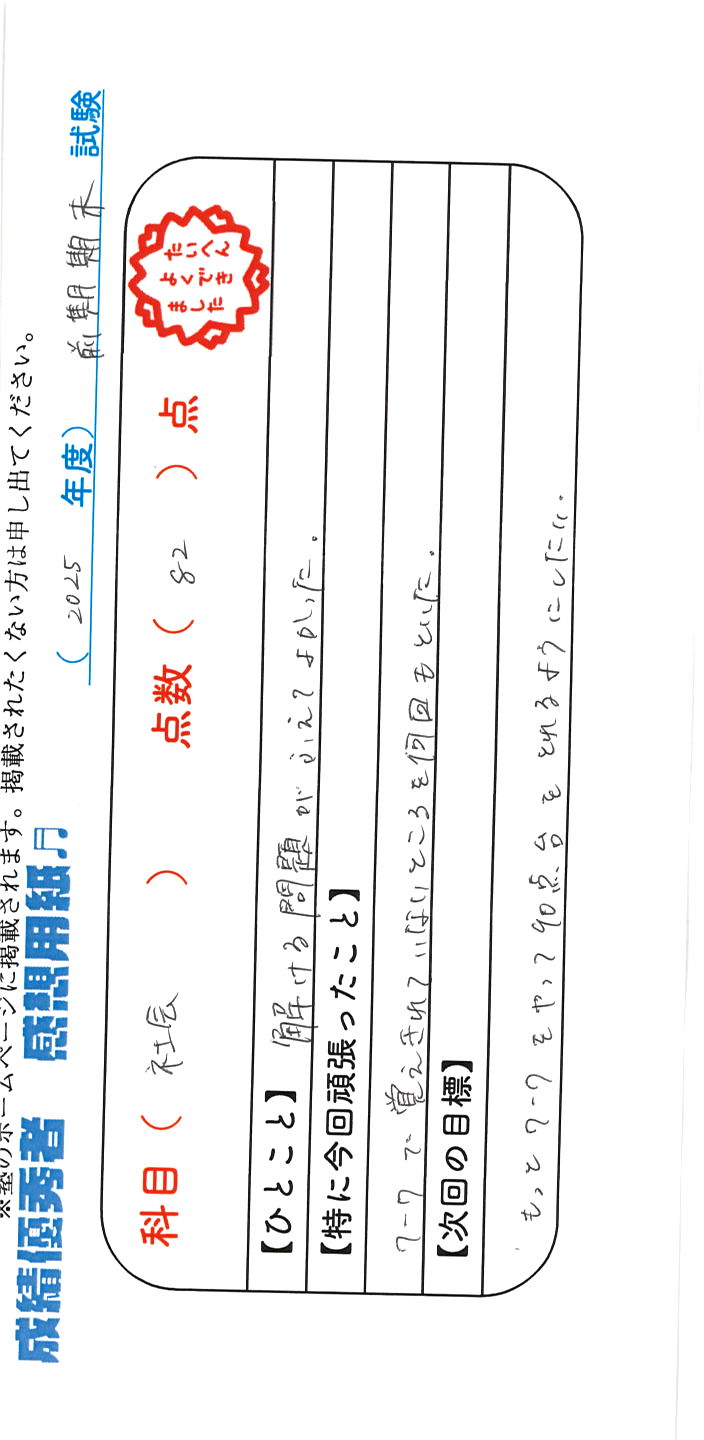 ※塾のホームページに掲載されます。掲載されたくない方は申し出てください。
成績優秀者 感想用紙♫
（2025 年度）前期期末 試験
科目（社会）点数（82）点
たいへん
よくでき
ました
【ひとこと】解ける問題がふえてよかった。
【特に今回頑張ったこと】
ワークで覚えきれていないところを何回もといた。
【次回の目標】
もっとワークをやって90点台をとれるようにしたい。